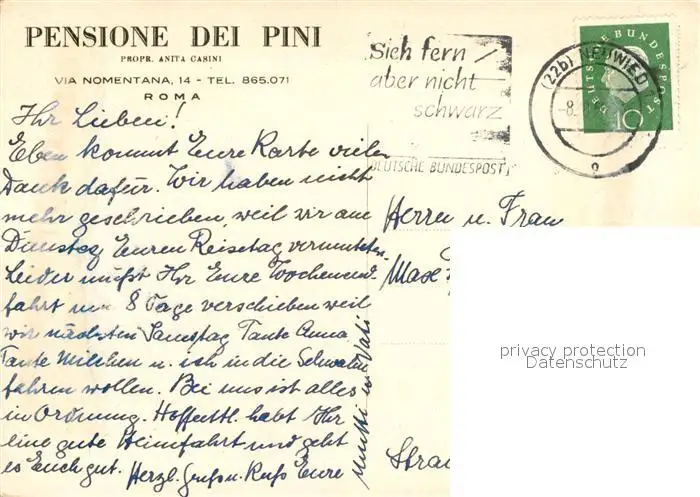 PENSIONE DEI PINI
PROPR. ANITA CASINI
VIA NOMENTANA, 14 - TEL. 865.071
ROMA
Ihr Lieben!
Eben kommt Eure Karte vielen
Dank dafür. Wir haben nicht
mehr geschrieben, weil wir am
Dienstag Euren Reisetag vermuteten.
Leider müßt Ihr Eure Wochenend
fahrt um 8 Tage verschieben weil
wir nächsten Samstag Tante Anna
Tante Milchen u. ich in die Schwalm
fahren wollen. Bei uns ist alles
in Ordnung. Hoffentl. habt Ihr
eine gute Heimfahrt und geht
es Euch gut. Herzl. Gruß u. Kuß Eure
Mutti und Vati
Sieh fern
aber nicht
schwarz
DEUTSCHE BUNDESPOST
(22b) NEUWIED
-8.
DEUTSCHE BUNDESPOST
10
Herrn u. Frau
Max
Stra
privacy protection
Datenschutz